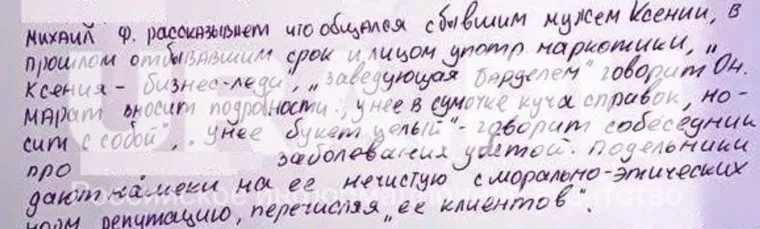 Михаил Ф. рассказывает что общался с бывшим мужем Ксении, в
прошлом отбывавшим срок и лицом употр наркотики, „
Ксения - бизнес-леди", „заведующая барделем" говорит Он.
Марат вносит подробности: „у нее в сумочке куча справок, но-
сит с собой", „у нее букет целый" - говорит собеседник
про заболевания у этой. Подельники
дают намеки на ее нечистую с морально-этических
норм репутацию, перечисляя „ее клиентов".